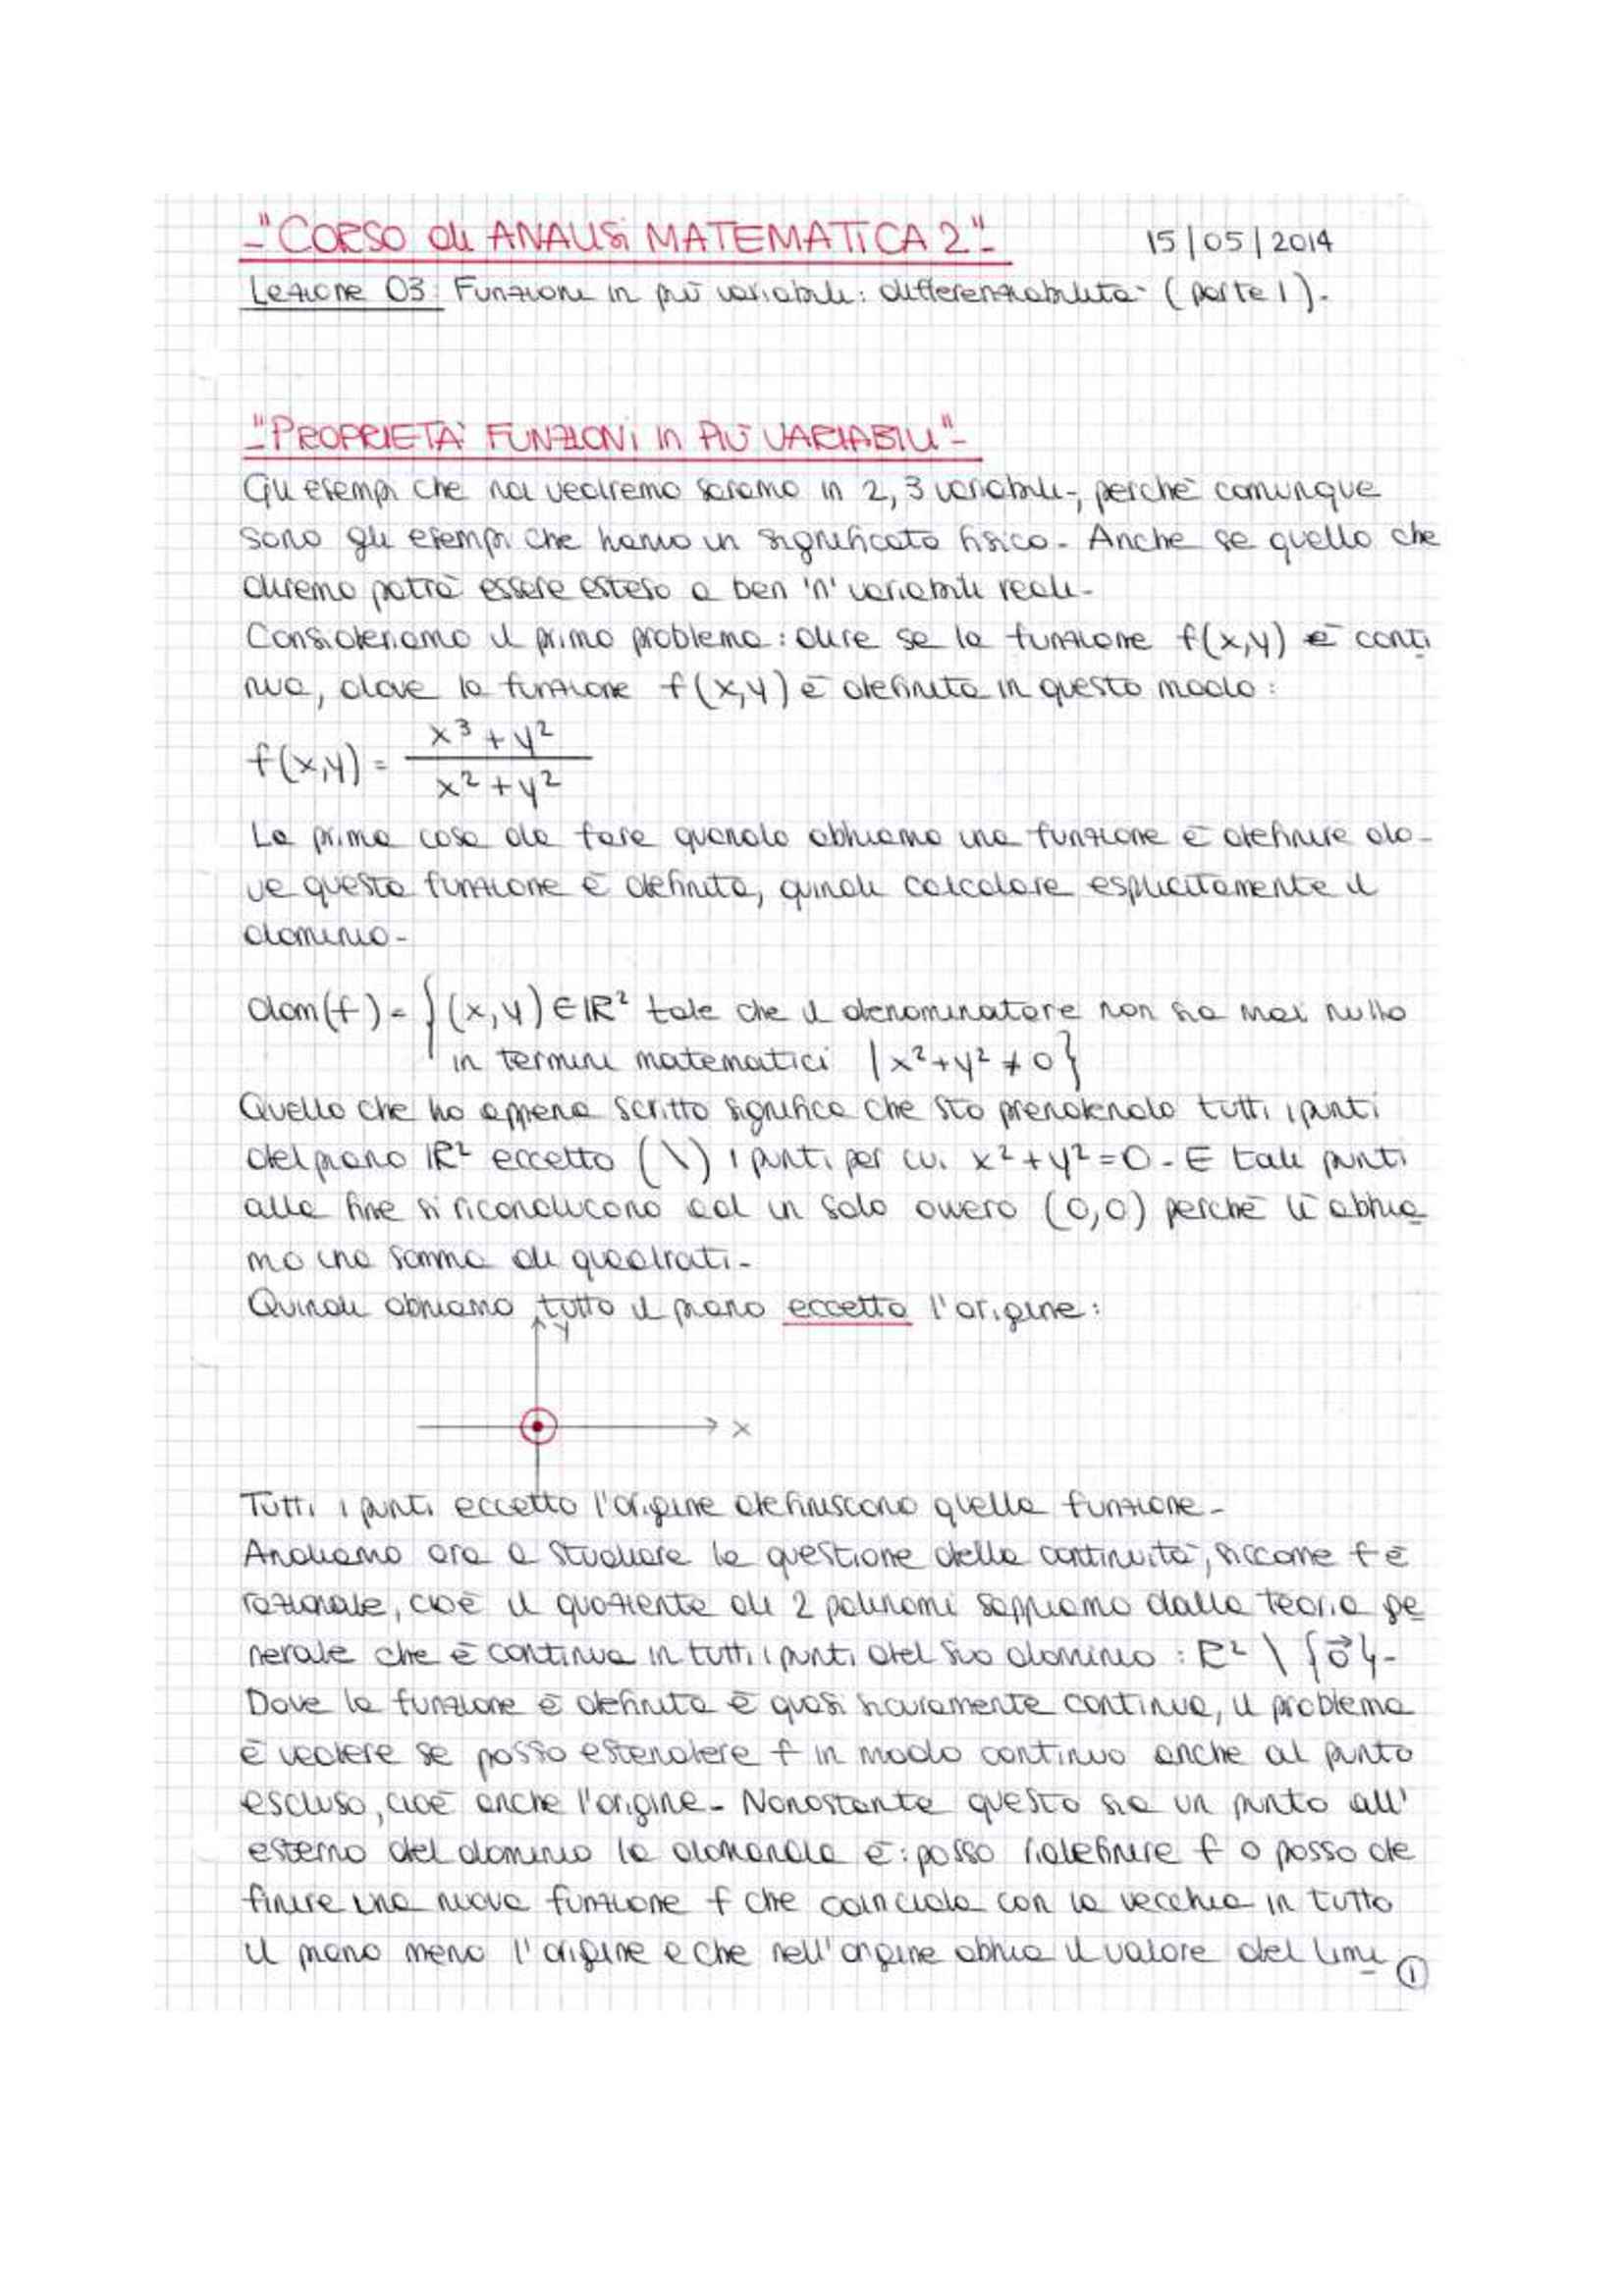 -"CORSO di ANALISI MATEMATICA 2"-
15/05/2014
Lezione 03: Funzioni in più variabili: differenziabilità (parte 1).
-"PROPRIETÀ FUNZIONI in PIÙ VARIABILI"-
Gli esempi che noi vedremo saranno in 2, 3 variabili, perchè comunque
sono gli esempi che hanno un significato fisico. Anche se quello che
diremo potrà essere esteso a ben 'n' variabili reali.
Consideriamo il primo problema: dire se la funzione f(x,y) è conti
nua, dove la funzione f(x,y) è definita in questo modo:
f(x,y) = (x³ + y²) / (x² + y²)
La prima cosa da fare quando abbiamo una funzione è definire do-
ve questa funzione è definita, quindi calcolare esplicitamente il
dominio.
dom(f) = {(x,y) ∈ ℝ² tale che il denominatore non sia mai nullo
in termini matematici | x² + y² ≠ 0}
Quello che ho appena scritto significa che sto prendendo tutti i punti
del piano ℝ² eccetto (\) i punti per cui x² + y² = 0. E tali punti
alla fine si riconducono ad un solo ovvero (0,0) perchè lì abbia
mo una somma di quadrati.
Quindi abbiamo tutto il piano eccetto l'origine:
y
x
Tutti i punti eccetto l'origine definiscono quella funzione.
Andiamo ora a studiare la questione della continuità, siccome f è
razionale, cioè il quoziente di 2 polinomi sappiamo dalla teoria ge
nerale che è continua in tutti i punti del suo dominio: ℝ² \ {0⃗}.
Dove la funzione è definita è quasi sicuramente continua, il problema
è vedere se posso estendere f in modo continuo anche al punto
escluso, cioè anche l'origine. Nonostante questo sia un punto all'
esterno del dominio la domanda è: posso ridefinire f o posso de
finire una nuova funzione f che coincida con la vecchia in tutto
il piano meno l'origine e che nell'origine abbia il valore del limi
1